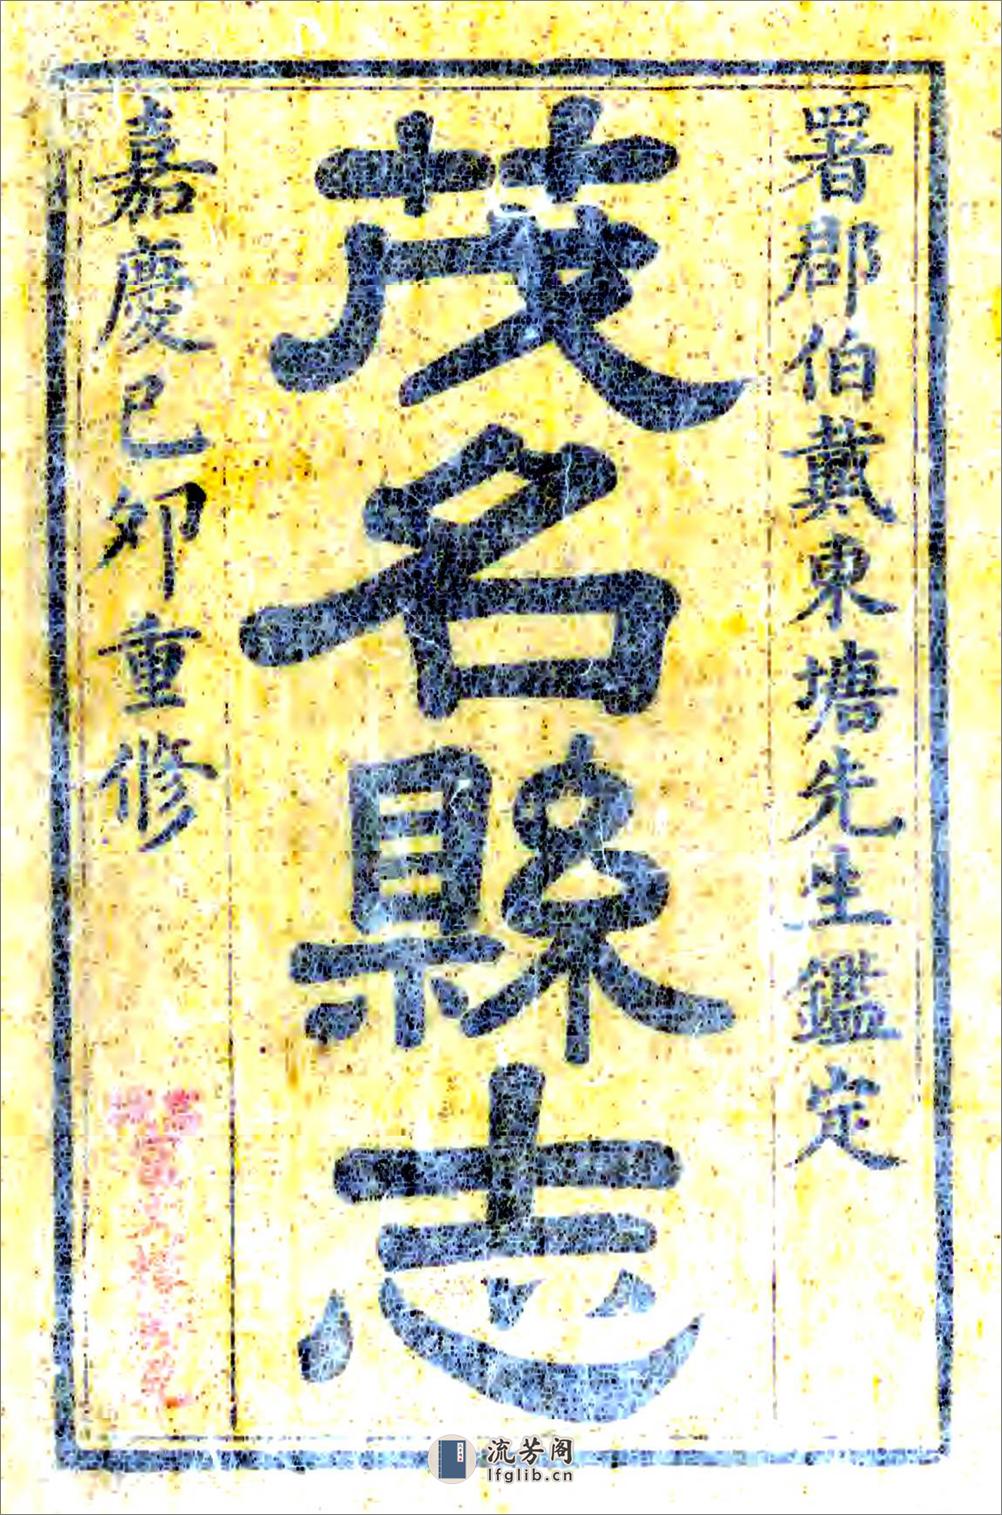 署郡伯戴東塘先生鑑定
茂名縣志
嘉慶己卯重修
流芳阁
lfglib.cn